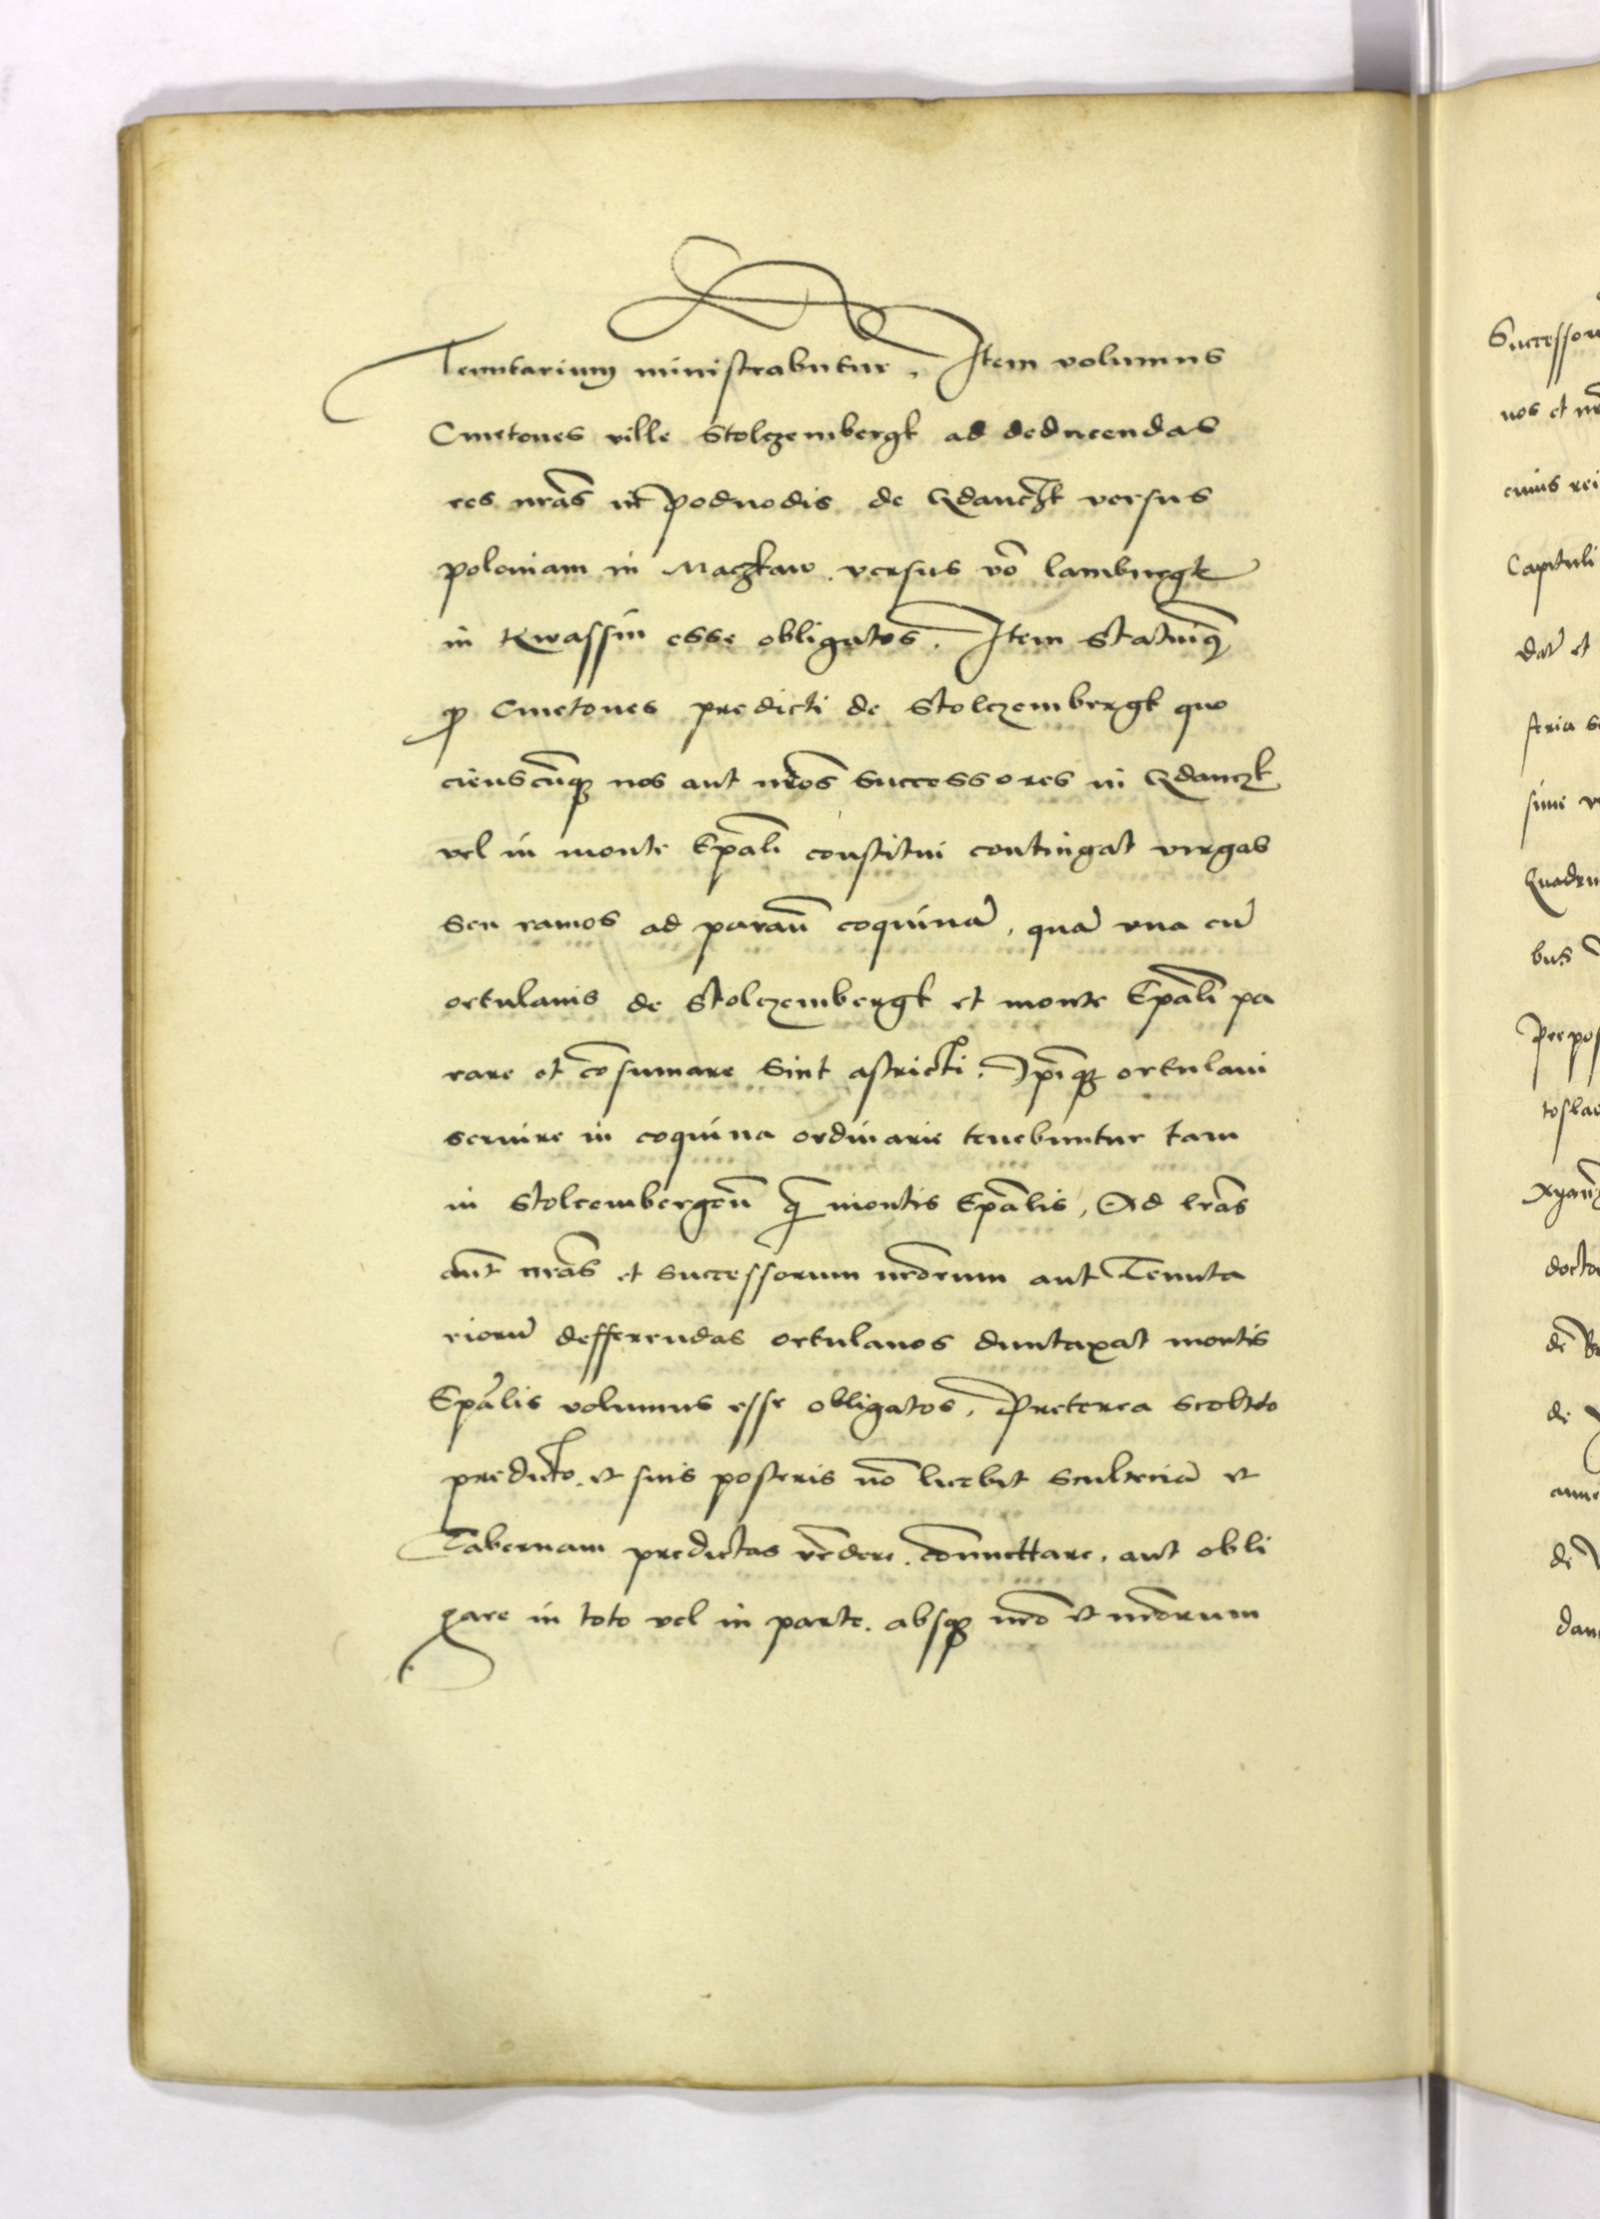 Tenutarium ministrabutur, Item volumus
Cmetones ville Stolczembergk ad deducendas
res nr̃as in podvodis de Gdanczk versus
poloniam in Maczkaw. versus vō lamburgk
in Kwassin esse obligatos. Item Statuimꝰ
ꝙ Cmetones predicti de Stolczembergk quo
cienscūqꝫ nos aut nr̃os Successores in Gdanczk
vel in monte Ep̄ali constitui contingat virgas
seu ramos ad parañ coquinā, quā vna cū
ortulanis de Stolczembergk et monte Ep̄ali pa
rare et cōsumare sint astricti. Ip̄iqꝫ ortulani
servire in coquina ordinarie tenebuntur tam
in Stolcembergeñ ꝗ̄ montis Ep̄alis, Ad lr̃as
aut̄ nr̃as et Successorum nr̃orum aut Tenuta
riorū defferendas ortulanos duntaxat montis
Ep̄alis volumus esse obligatos. Preterea Scolteto
predicto. et suis posteris nō licebit Scultetiā et
Tabernam predictas vēdere. cōmuttare, aut obli
gare in toto vel in parte. absqꝫ nr̃o et nr̃orum
Successoru
nos et nr̃
cuius rei
Capituli
dat̄ et
feria
simi
Quadru
bus
Prepos
tosla
docto
dē
de
anne
de
dan